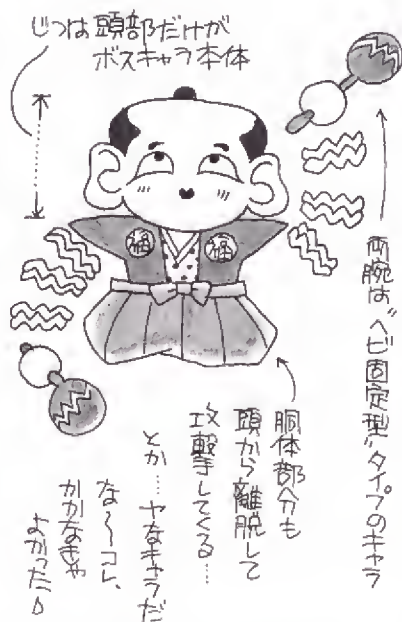 じつは頭部だけが
ボスキャラ本体
両腕は“ヘビ固定型”タイプのキャラ
福
福
胴体部分も
頭から離脱して
攻撃してくる…
とか…ヤなキャラだ
な〜コレ、
かかなきゃ
よかった